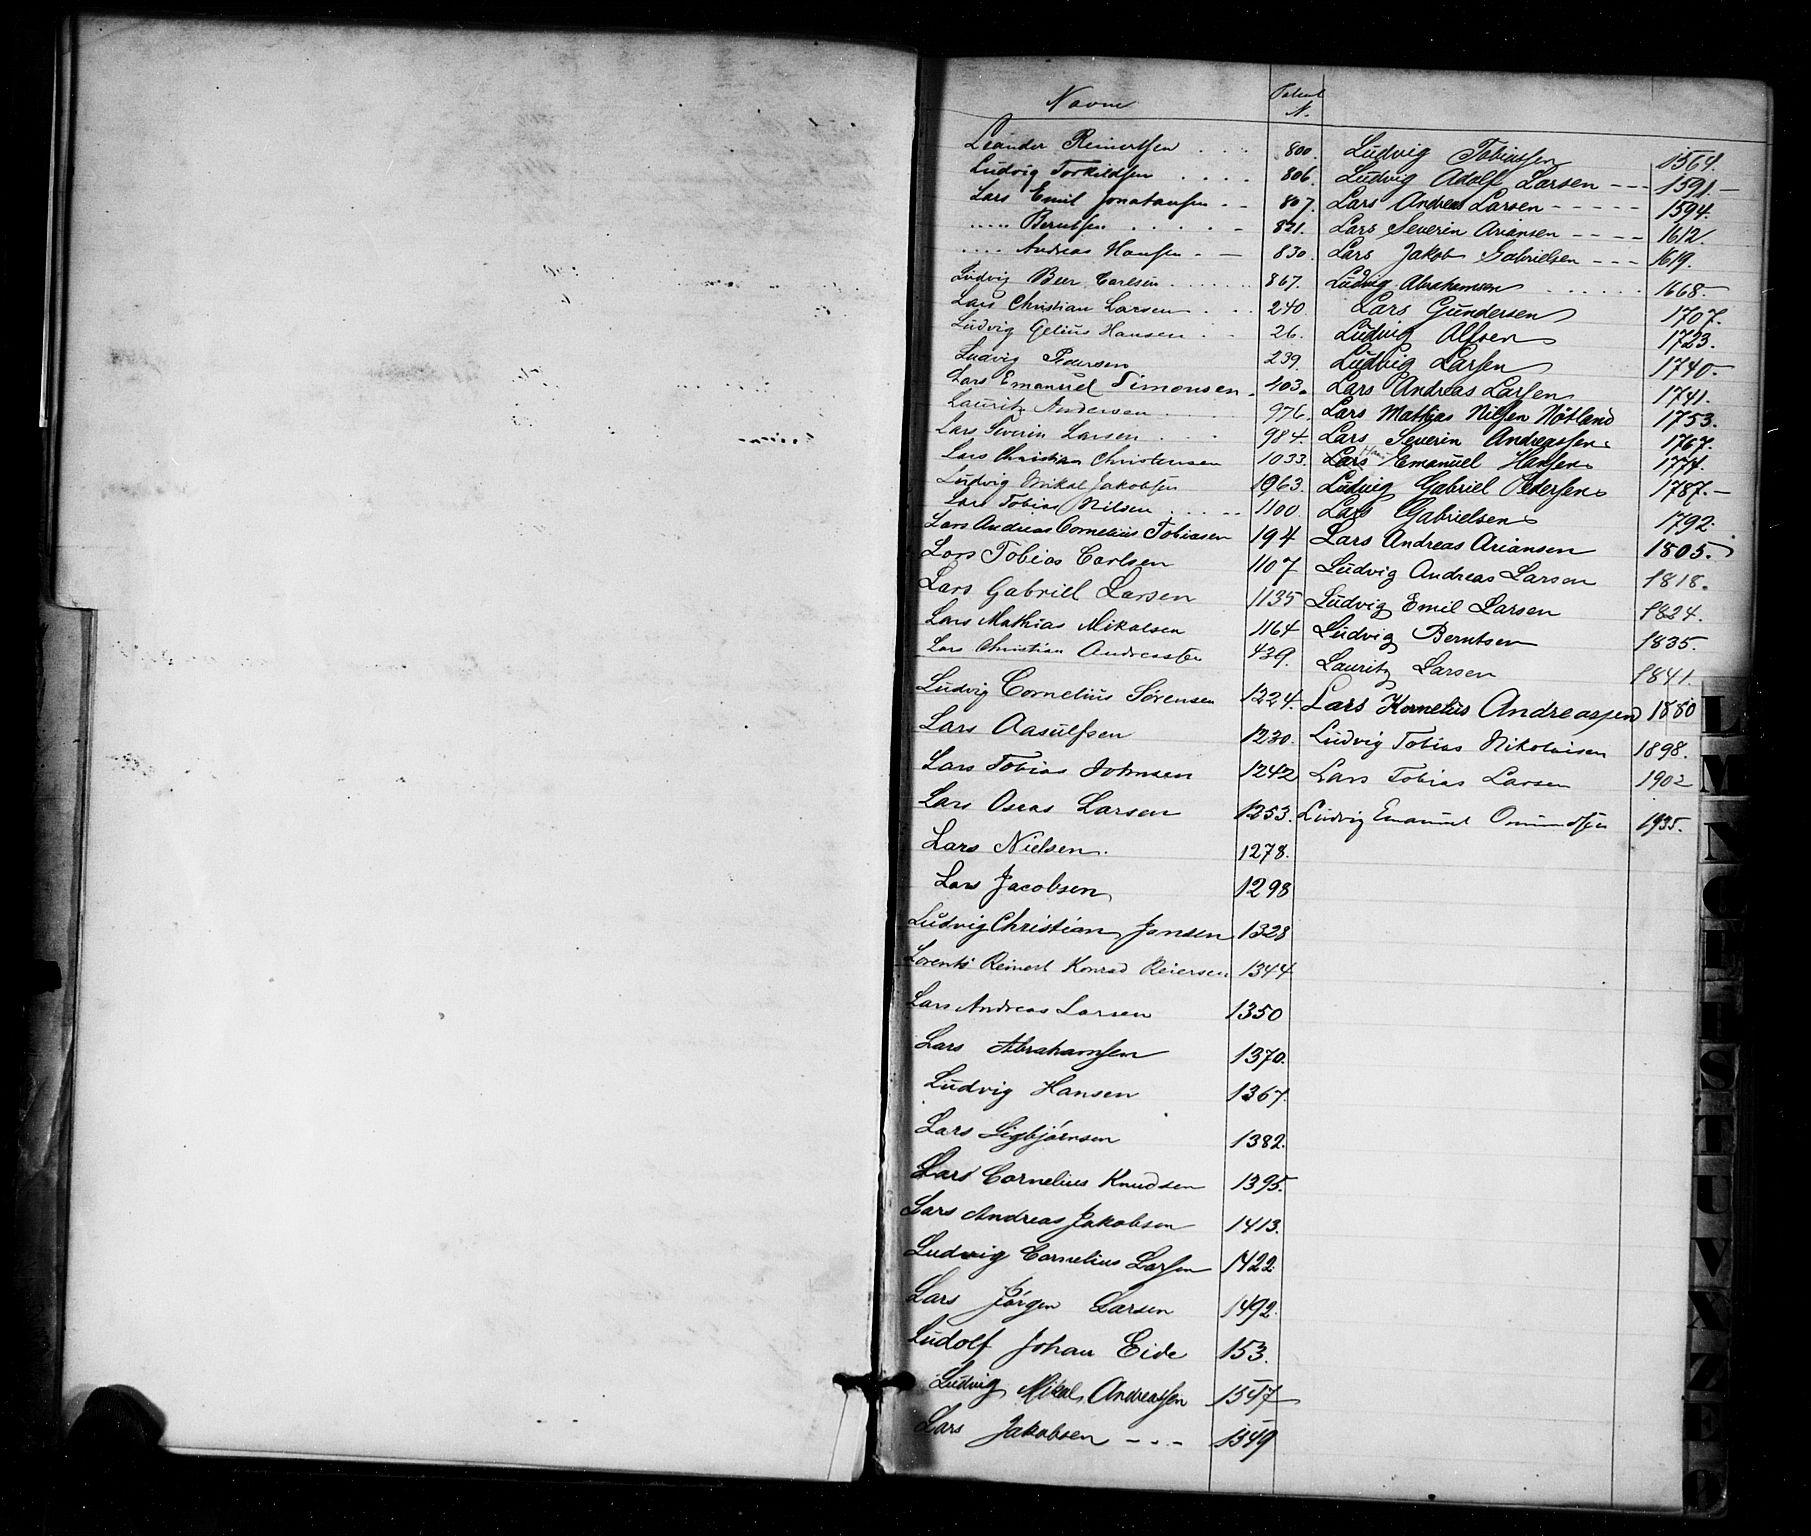 Navn
Patent
N.
Leander Reinertsen . . . 800.
Ludvig Torkildsen . . . . 806.
Lars Emil Jonatansen . - 807.
..... Berntsen . . . . . - 821.
.... Andreas Hansen . - 830.
Ludvig Beer Carlsen . . . . . . 867.
Lars Christian Larsen . . . 240.
Ludvig Gelius Hansen . - 26.
Ludvig Pedersen 239.
Lars Emanuel Timonsen . 103.
Lauritz Andersen . . . 976.
Lars Severin Larsen . . . 984.
Lars Christian Christensen 1033.
Ludvig Mikal Jakobsen 1963.
Lars Tobias Nilsen . . . . . 1100.
Lars Andreas Cornelius Tobiasen 194
Lars Tobias Carlsen 1107
Lars Gabriel Larsen 1135
Lars Mathias Mikalsen 1164
Lars Christian Andreassen 439.
Ludvig Cornelius Sørensen 1224.
Lars Aasulfsen 1230.
Lars Tobias Johnsen 1242
Lars Oseas Larsen 1253.
Lars Nielsen. 1278.
Lars Jacobsen 1298
Ludvig Christian Jensen 1328
Lorents Reinert Konrad Reiersen 1344
Lars Andreas Larsen 1350
Lars Abrahamsen 1370.
Ludvig Hansen 1367.
Lars Sigbjørnsen 1382.
Lars Cornelius Knudsen 1395.
Lars Andreas Jakobsen 1413.
Ludvig Cornelius Larsen 1422
Lars Jørgen Larsen 1492.
Ludolf Johan Eide 153.
Ludvig Mikal Andreassen 1547
Lars Jakobsen - . - 1549
Ludvig Tobiassen 1564.
Ludvig Adolf Larsen - - - 1591.-
Lars Andreas Larsen - - - - - 1594.
Lars Severin Ariansen - - - - 1612.
Lars Jakob Gabrielsen - - - 1619.
Ludvig Abrahamsen . . . . . . 1668.-
Lars Gundersen 1707.
Ludvig Alfsen 1723.
Ludvig Larsen 1740.-
Lars Andreas Larsen 1741.
Lars Mathias Nilsen Nötland 1753.
Lars Severin Andreassen 1767.
Hans
Lars Emanuel Hansen 1774.
Ludvig Gabriel Pedersen 1787.-
Lars Gabrielsen 1792.
Lars Andreas Ariansen 1805.
Ludvig Andreas Larsen 1818.
Ludvig Emil Larsen 1824.
Ludvig Berntsen 1835.
Lauritz Larsen 1841.
Lars Kornelius Andreassen 1880
Ludvig Tobias Nikolaisen 1898.
Lars Tobias Larsen 1902
Ludvig Emanuel Omundsen 1935.
L
M
N
O
P
R
S
T
U
V
X
Z
Æ
Ø